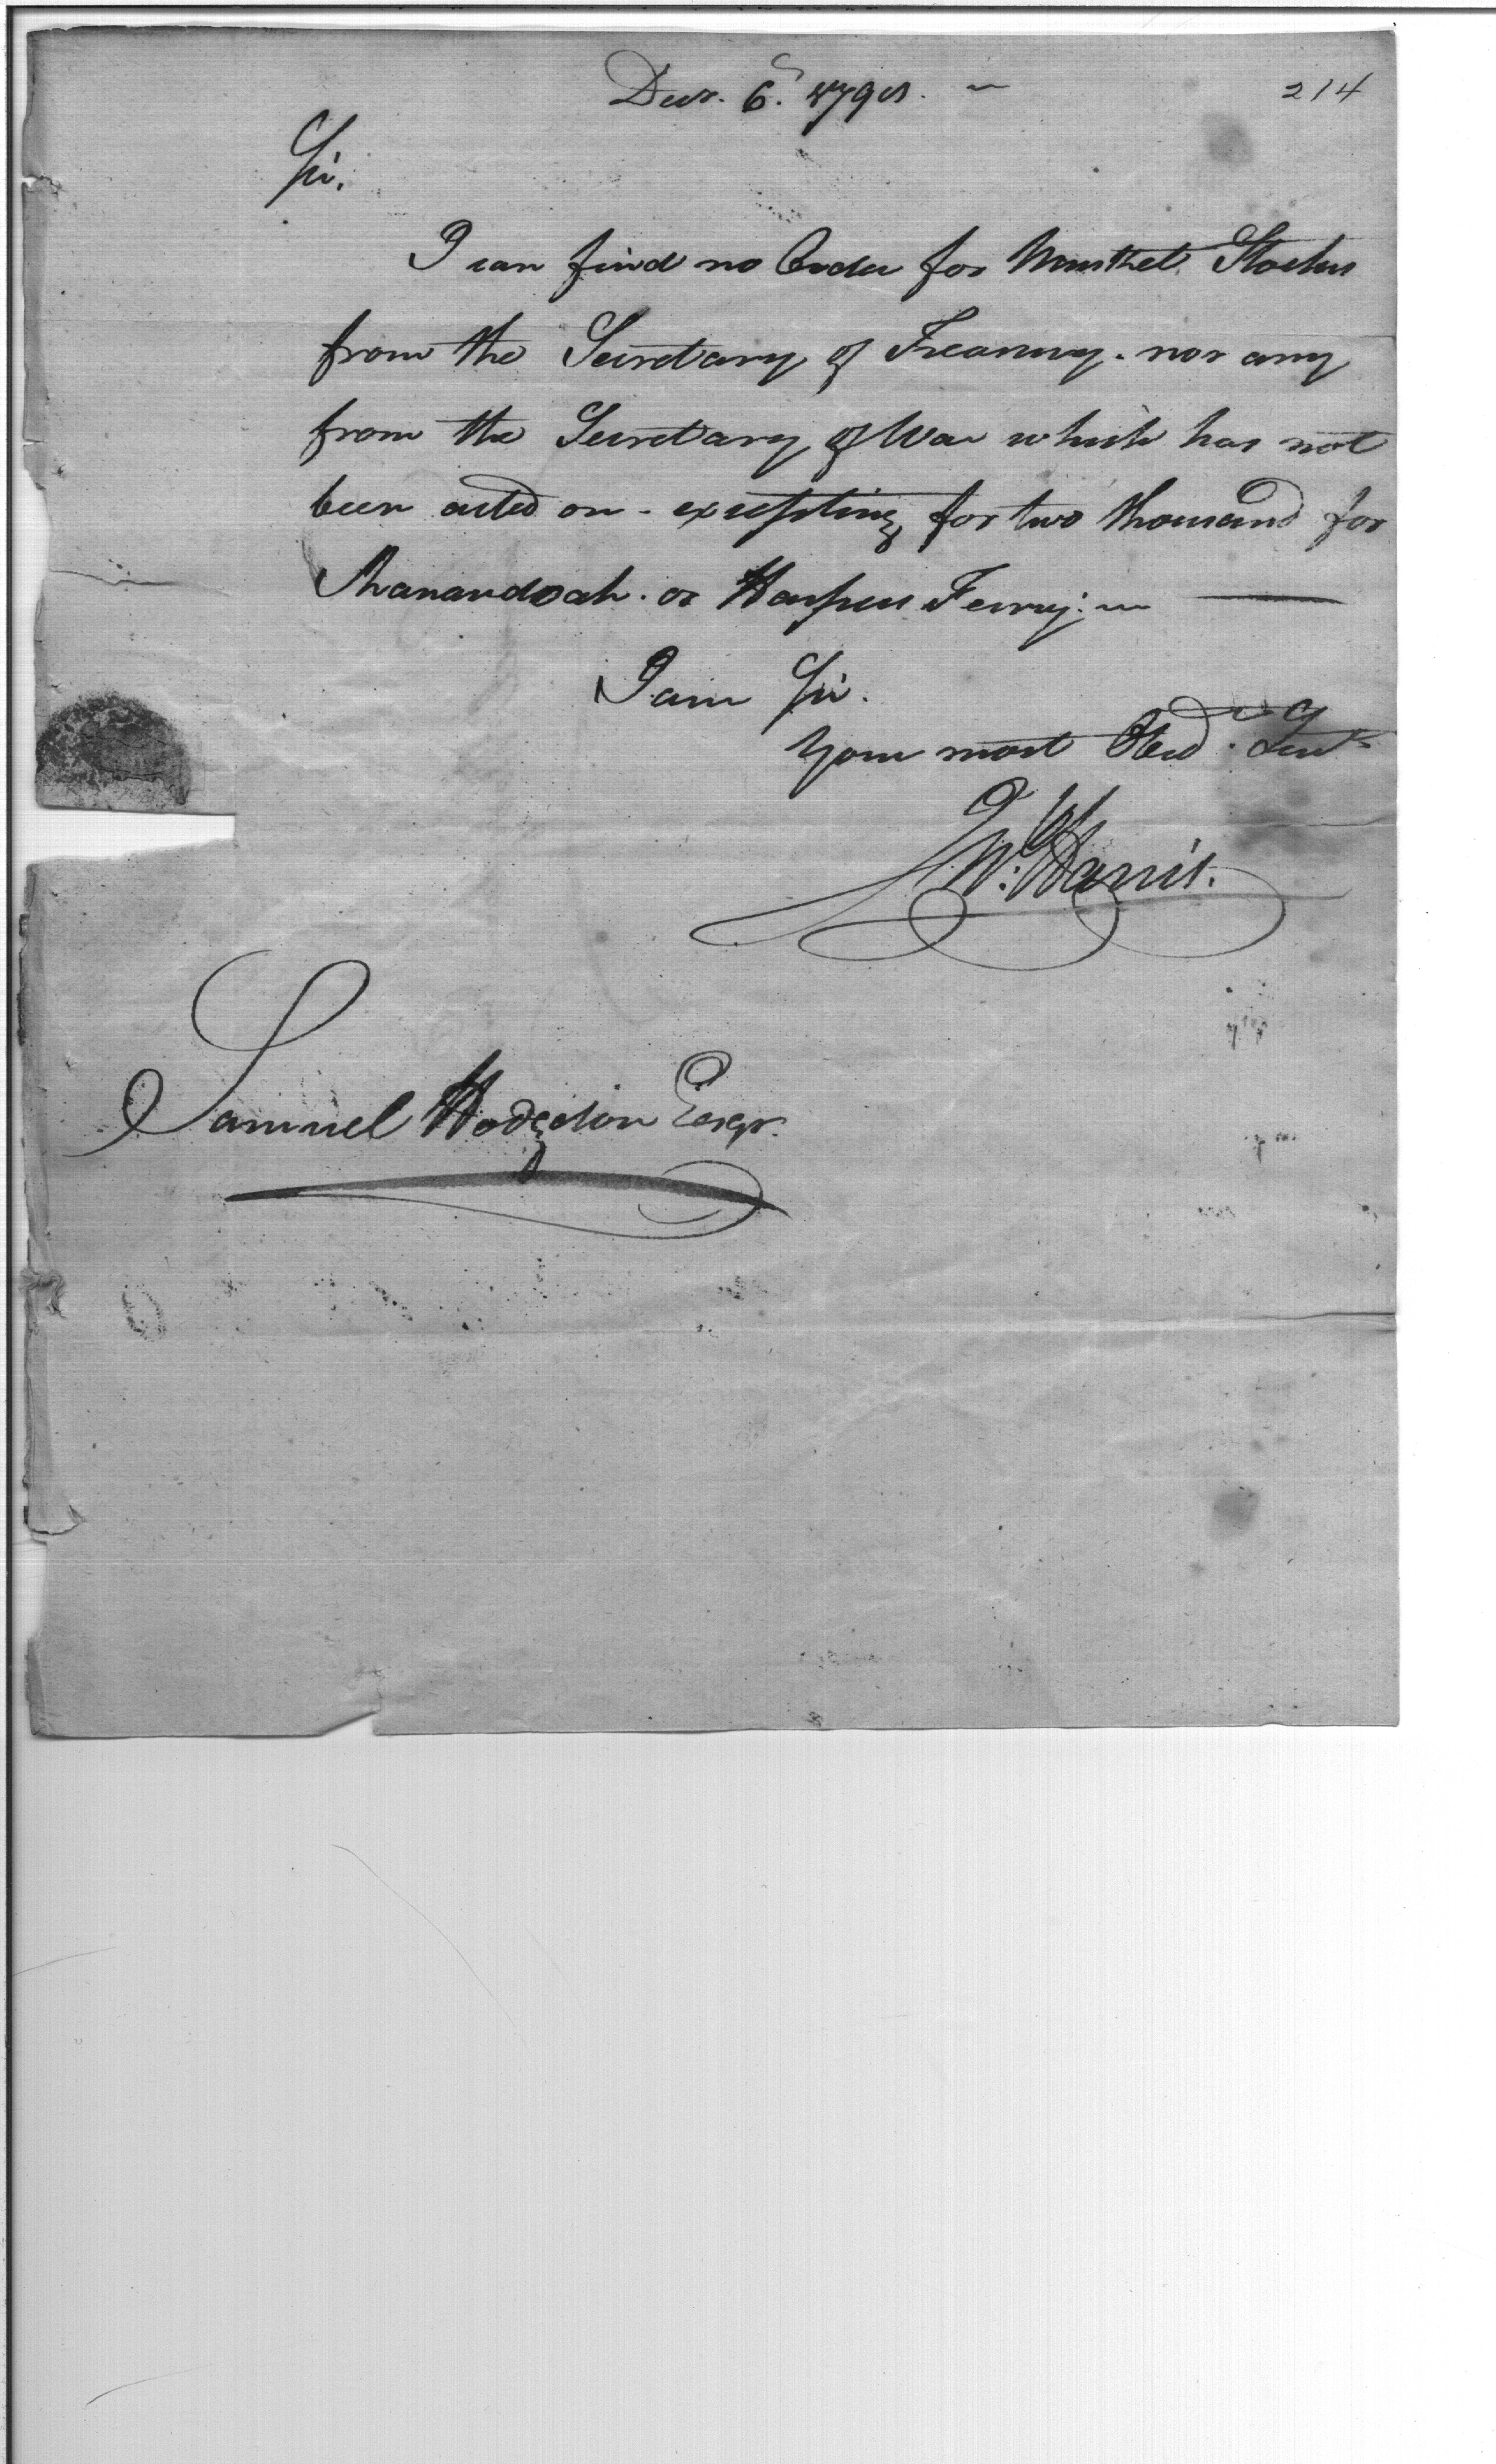 Decr. 6. 1798.
214
Sir.
I can find no Order for Musket Stocks
from the Secretary of Treasury. nor any
from the Secretary of War which has not
been acted on - excepting for two thousand for
Shanandoah. or Harpers Ferry.
I am Sir.
Your most Obed. Servt
Harris.
Samuel Hodgdon Esqr.